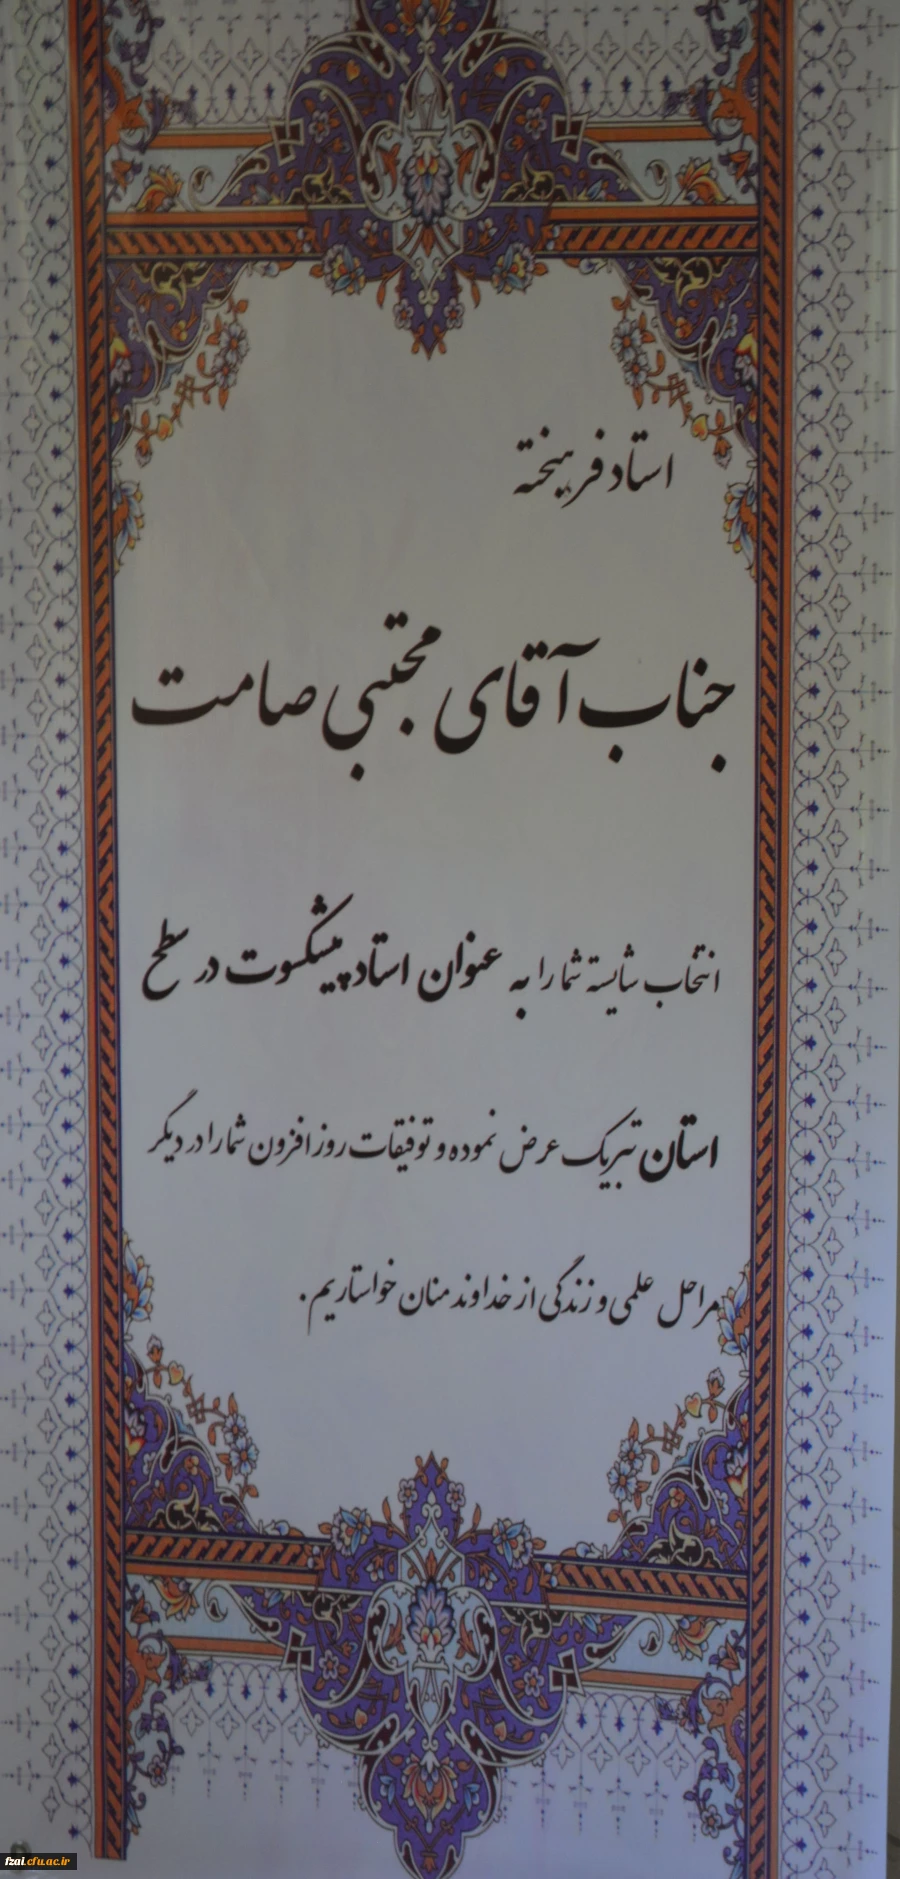 استاد فرهیخته
جناب آقای مجتبی صامت
انتخاب شایسته شما را به عنوان استاد پیشکسوت در سطح
استان تبریک عرض نموده و توفیقات روز افزون شما را در دیگر
مراحل علمی و زندگی از خداوند منان خواستاریم.
fzai.cfu.ac.ir